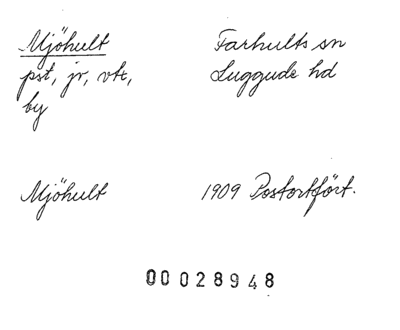 Mjöhult Farhults sn
pst, jr, vht, Luggude hd
by
Mjöhult 1909 Postortfört.
00028948